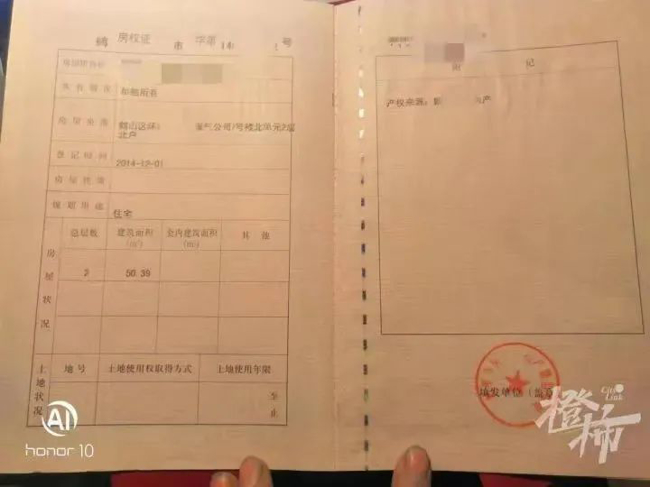 房权证 市 字第 14 号
共有情况 单独所有
房屋坐落 鹤山区 煤气公司7号楼北单元2层
北户
登记时间 2014-12-01
房屋性质
规划用途 住宅
房屋状况
总层数 建筑面积 (㎡) 套内建筑面积 (㎡) 其他
2 50.39
土地状况
地号 土地使用权取得方式 土地使用年限
至
止
附 记
产权来源：
产
填发单位（盖章）
AI
honor 10
橙柿
Citi Link